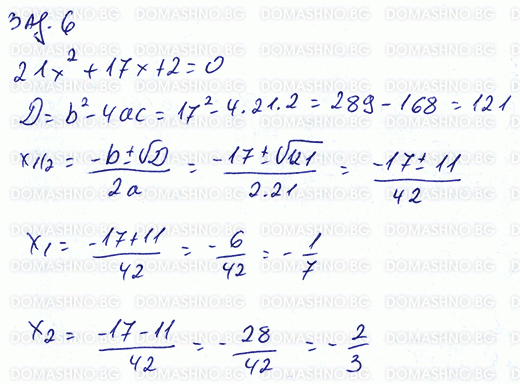 Зад. 6
21x² + 17x + 2 = 0
D = b² - 4ac = 17² - 4.21.2 = 289 - 168 = 121
x₁/₂ = (-b ± √D)/(2a) = (-17 ± √121)/(2.21) = (-17 ± 11)/42
x₁ = (-17 + 11)/42 = -6/42 = -1/7
x₂ = (-17 - 11)/42 = -28/42 = -2/3
DOMASHNO.BG